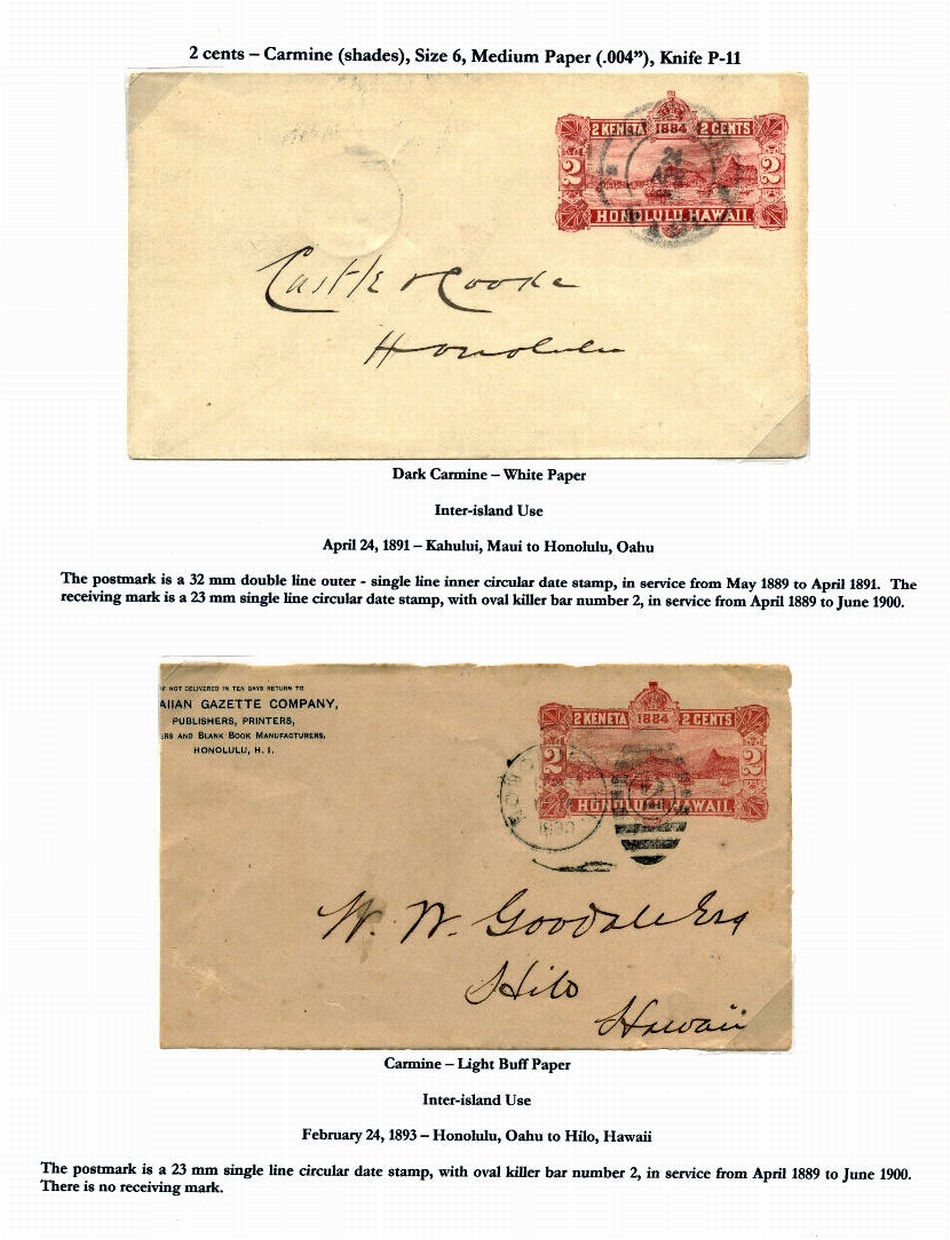 2 cents – Carmine (shades), Size 6, Medium Paper (.004”), Knife P-11
2 KENETA 1884 2 CENTS
2 2
24
HONOLULU, HAWAII.
Castle & Cooke
Honolulu
Dark Carmine – White Paper
Inter-island Use
April 24, 1891 – Kahului, Maui to Honolulu, Oahu
The postmark is a 32 mm double line outer - single line inner circular date stamp, in service from May 1889 to April 1891. The
receiving mark is a 23 mm single line circular date stamp, with oval killer bar number 2, in service from April 1889 to June 1900.
IF NOT DELIVERED IN TEN DAYS RETURN TO
AIIAN GAZETTE COMPANY,
PUBLISHERS, PRINTERS,
ERS AND BLANK BOOK MANUFACTURERS,
HONOLULU, H. I.
2 KENETA 1884 2 CENTS
2 2
HONOLULU, HAWAII.
1893
W. W. Goodale Esq
Hilo
Hawaii
Carmine – Light Buff Paper
Inter-island Use
February 24, 1893 – Honolulu, Oahu to Hilo, Hawaii
The postmark is a 23 mm single line circular date stamp, with oval killer bar number 2, in service from April 1889 to June 1900.
There is no receiving mark.